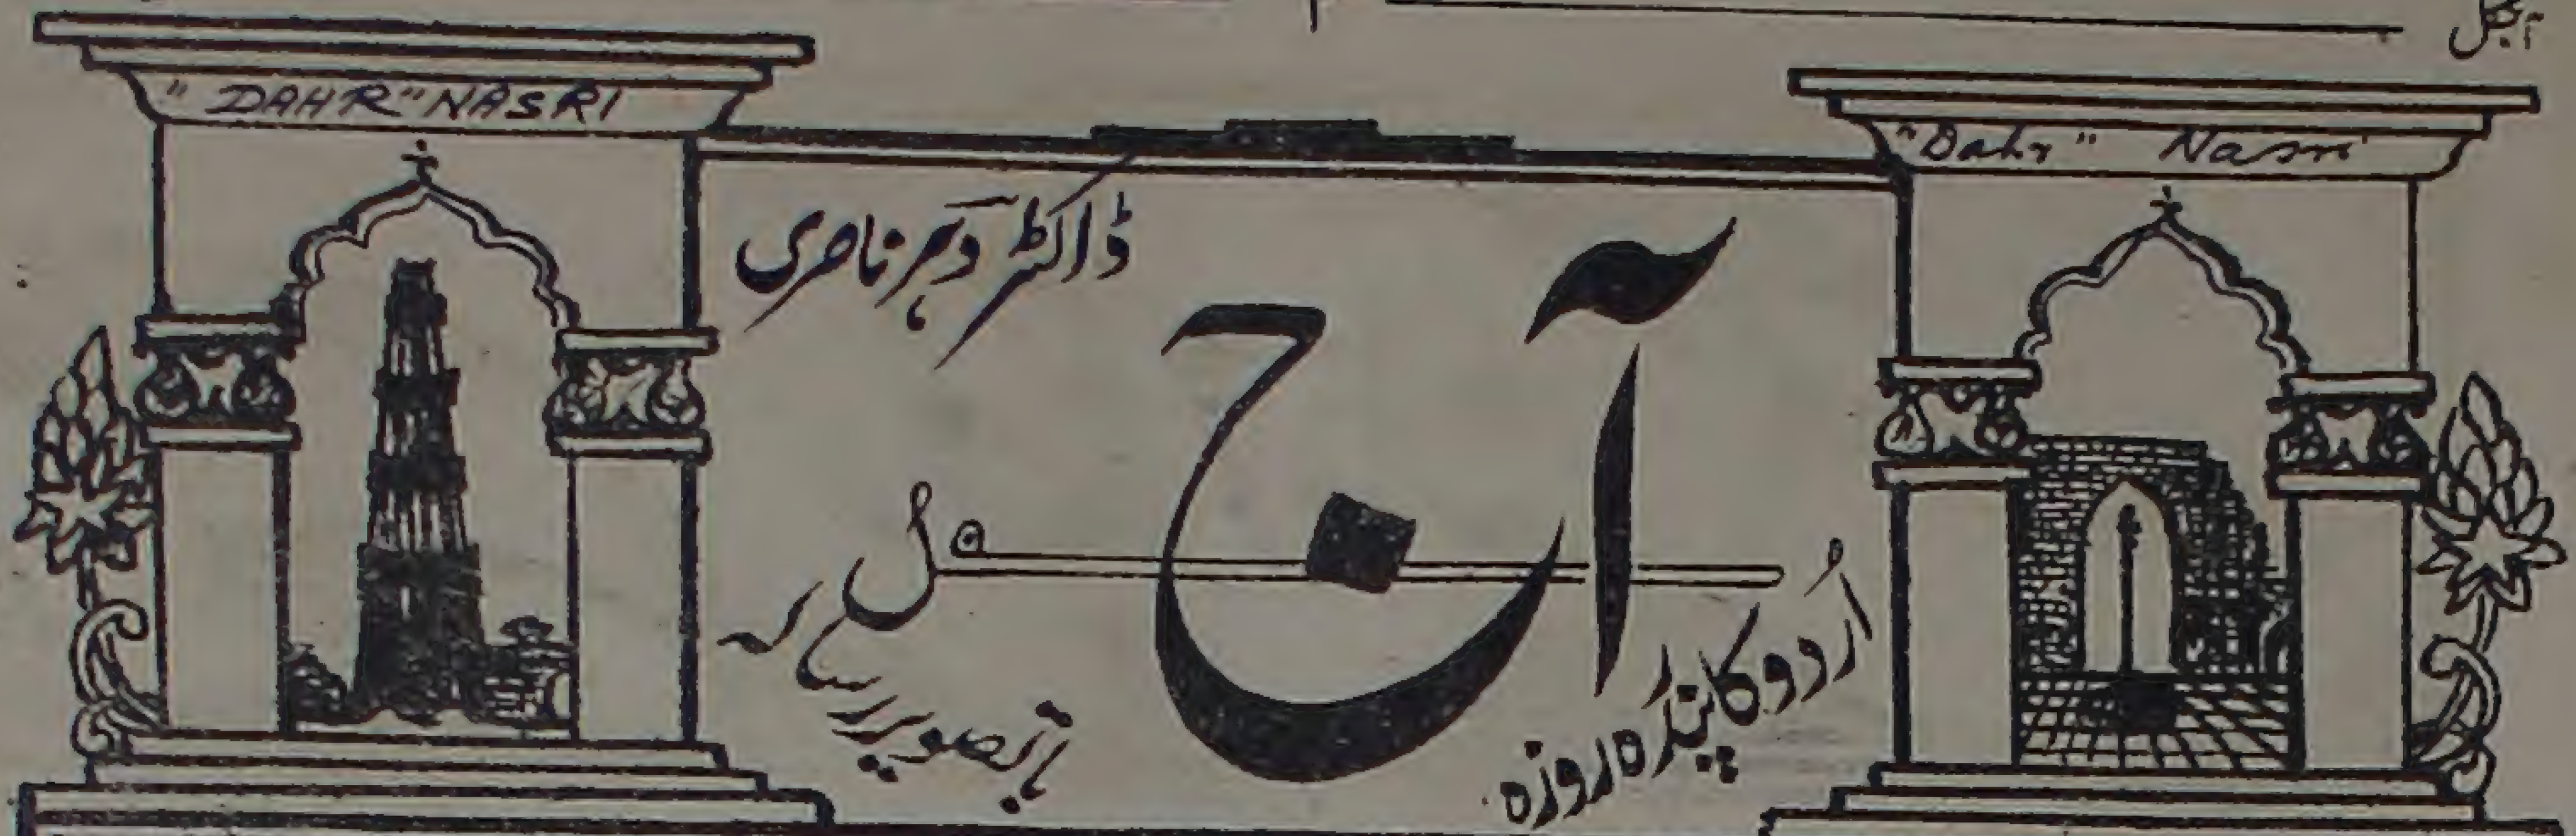 آجکل
"DAHR" NASRI
"Dahr" Nasri
ڈاکٹر دہر ناصری
آج کل
اُردو کا پندرہ روزہ
باتصویر رسالہ